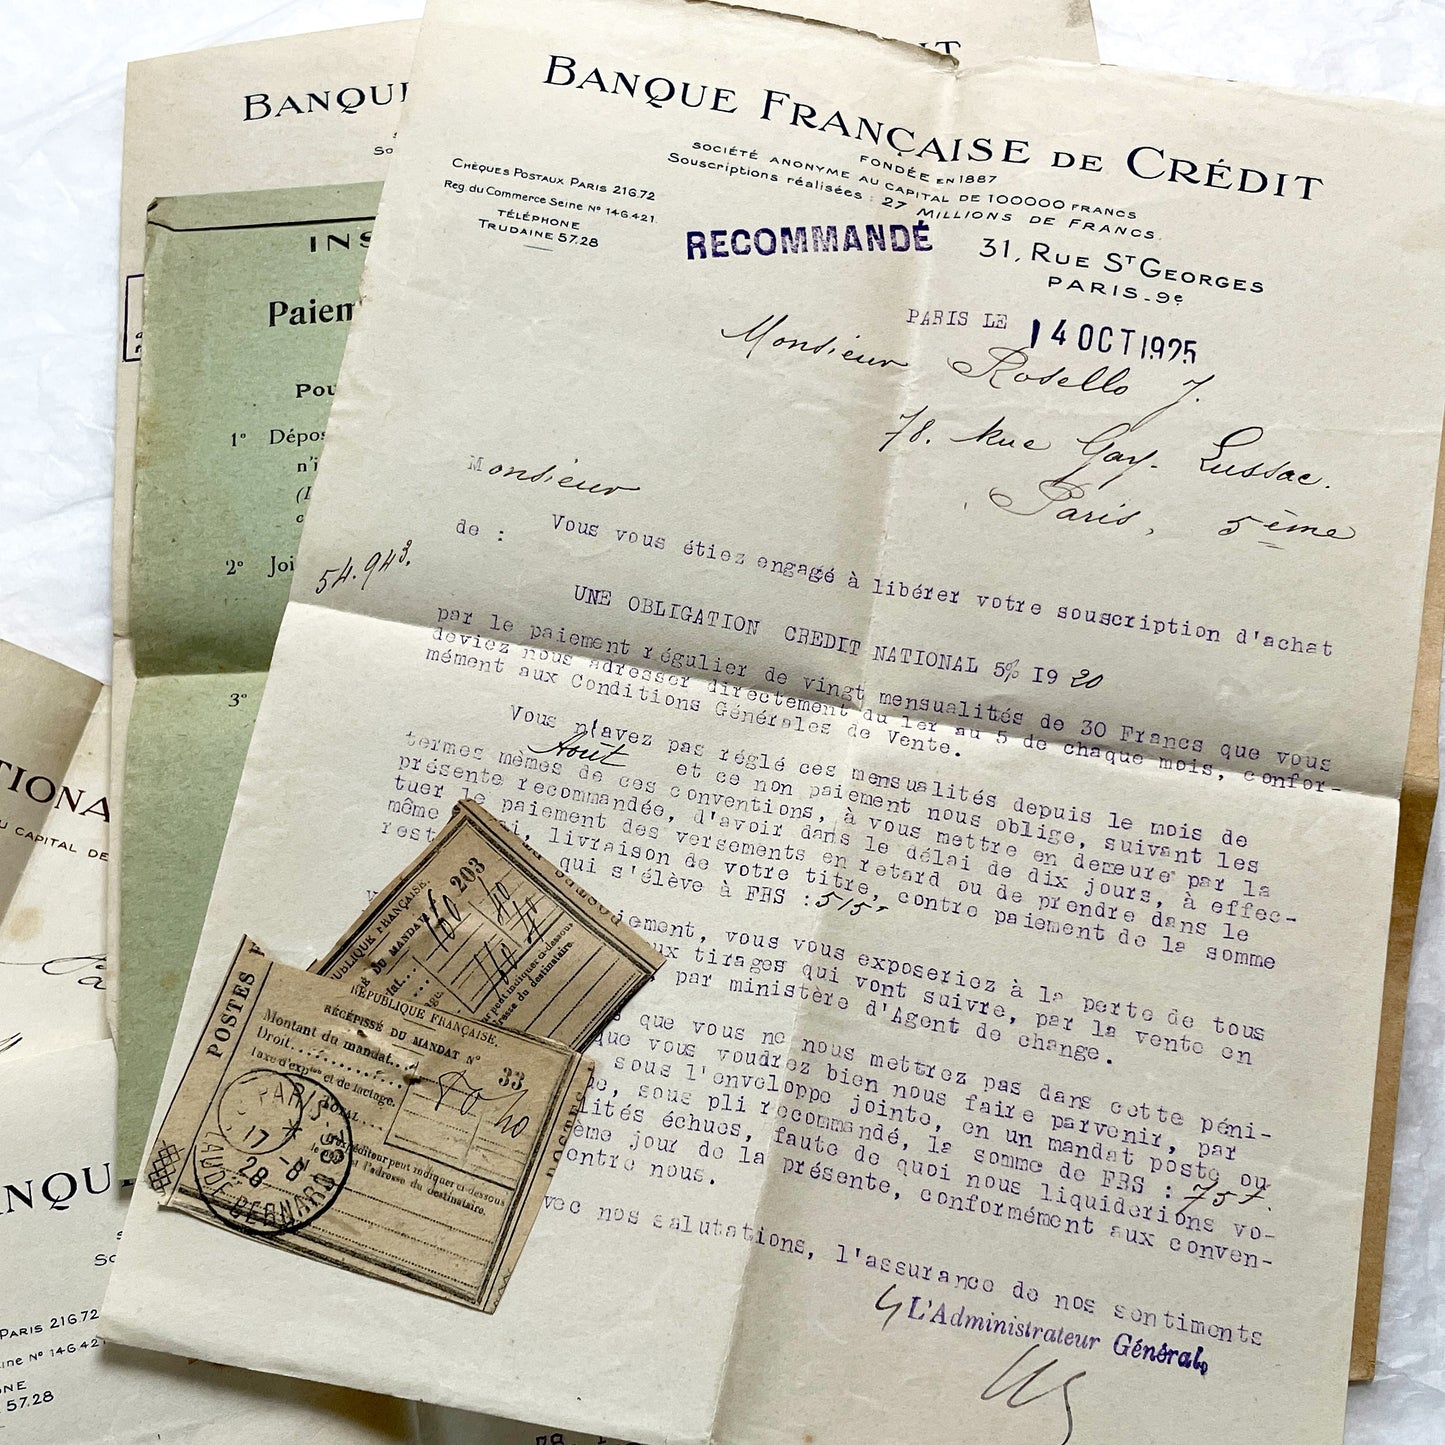 BANQUE FRANÇAISE DE CRÉDIT
FONDÉE EN 1887
SOCIÉTÉ ANONYME AU CAPITAL DE 100000 FRANCS
Souscriptions réalisées : 27 MILLIONS DE FRANCS
CHÈQUES POSTAUX PARIS 216.72
Reg du Commerce Seine N° 146.421.
TÉLÉPHONE
TRUDAINE 57.28
RECOMMANDÉ
31, RUE ST GEORGES
PARIS_9e
PARIS LE 14 OCT 1925
Monsieur Rosello J.
78. Rue Gay-Lussac.
Paris, 5ème
Monsieur
Vous vous étiez engagé à libérer votre souscription d'achat
de :
54.943.
UNE OBLIGATION CREDIT NATIONAL 5% 1920
par le paiement régulier de vingt mensualités de 30 Francs que vous
deviez nous adresser directement du 1er au 5 de chaque mois, confor-
mément aux Conditions Générales de Vente.
Vous n'avez pas réglé ces mensualités depuis le mois de
Août et ce non paiement nous oblige, suivant les
termes mêmes de ces conventions, à vous mettre en demeure par la
présente recommandée, d'avoir dans le délai de dix jours, à effec-
tuer le paiement des versements en retard ou de prendre dans le
même livraison de votre titre, contre paiement de la somme
qui s'élève à FRS : 515,-
vous vous exposeriez à la perte de tous
tirages qui vont suivre, par la vente en
par ministère d'Agent de change.
que vous ne nous mettrez pas dans cette péni-
que vous voudrez bien nous faire parvenir, par
sous l'enveloppe jointe, en un mandat poste ou
sous pli recommandé, la somme de FRS : 75 f.
échues, faute de quoi nous liquiderions vo-
jour de la présente, conformément aux conven-
entre nous.
avec nos salutations, l'assurance de nos sentiments
L'Administrateur Général,
203
160
RÉPUBLIQUE FRANÇAISE.
DU MANDAT
peut indiquer ci-dessous
du destinataire.
POSTES
RÉPUBLIQUE FRANÇAISE.
RÉCÉPISSÉ DU MANDAT N°
33
Montant du mandat...
Droit.
Taxe d'expon et de factage.
TOTAL
L'expéditeur peut indiquer ci-dessous
le nom et l'adresse du destinataire.
POSTES
PARIS
17 -8
28
BERNARD
BANQU
INS
Paiem
Pou
1° Dépos
n'i
2° Joi
3°
TIONA
U CAPITAL DE
NQU
PARIS 216.72
ine N° 146.421
NE
57.28
78.